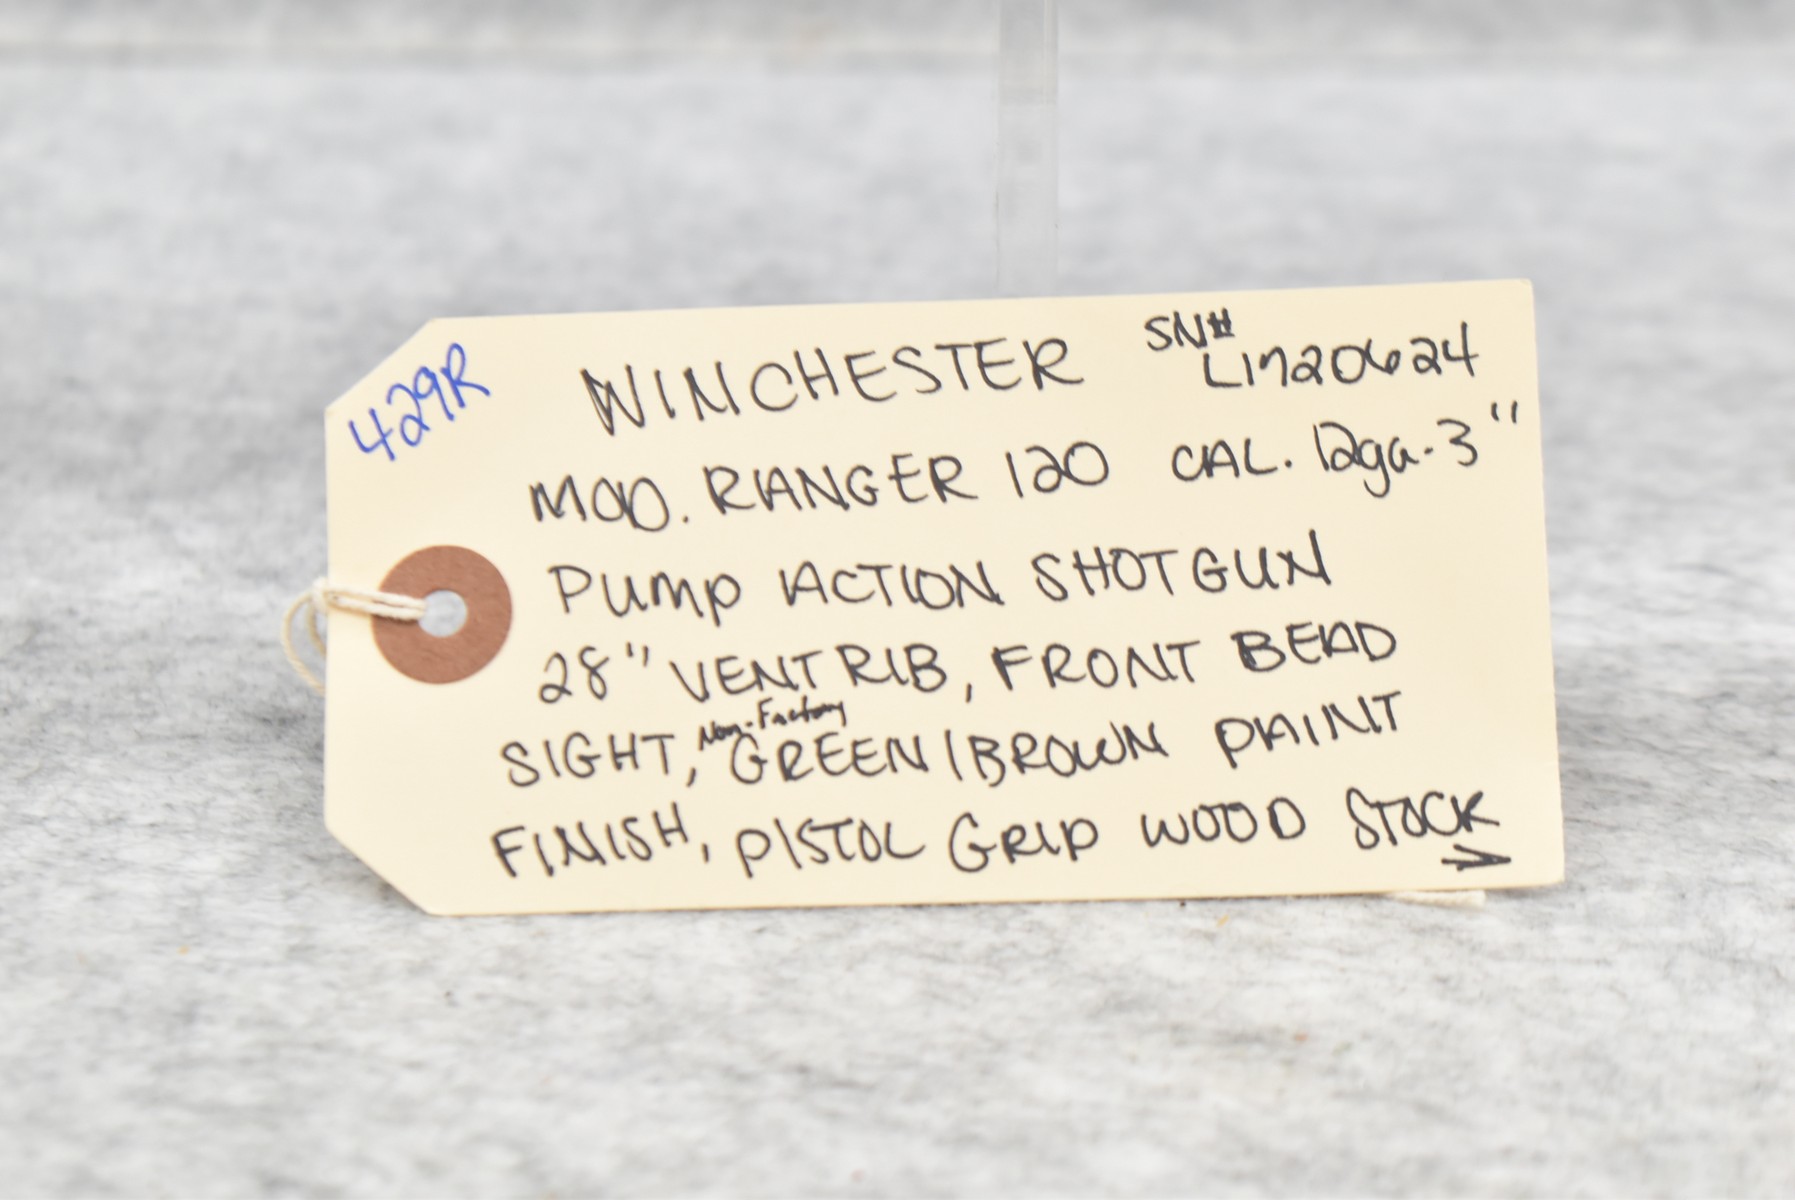 429R
WINCHESTER SN# L1720624
MOD. RANGER 120 CAL. 12ga-3"
PUMP ACTION SHOTGUN
28" VENT RIB, FRONT BEAD
SIGHT, Non-Factory GREEN/BROWN PAINT
FINISH, PISTOL GRIP WOOD STOCK